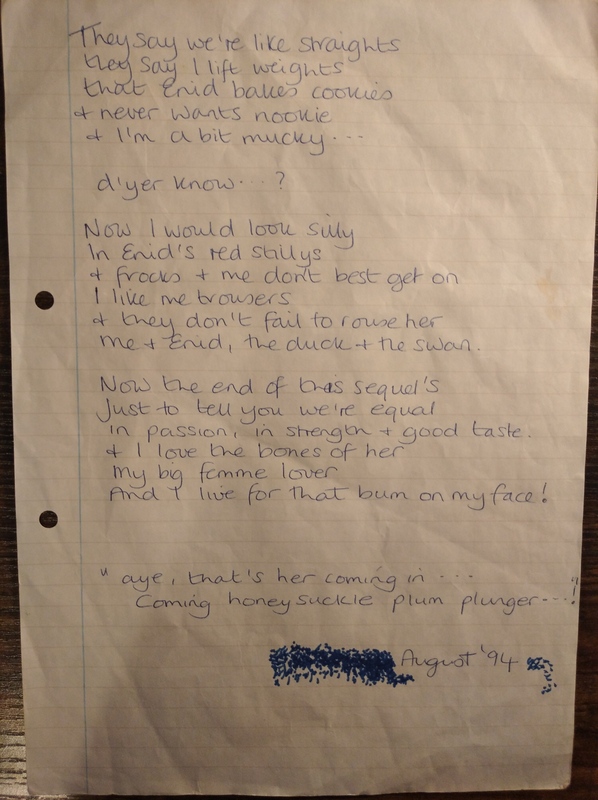 They say we're like straights
they say I lift weights
that Enid bakes cookies
+ never wants nookie
+ I'm a bit mucky...
d'yer know...?
Now I would look silly
In Enid's red stillys
+ frocks + me don't best get on
I like me trousers
+ they don't fail to rouse her
me + Enid, the duck + the swan.
Now the end of this sequel's
Just to tell you we're equal
in passion, in strength + good taste.
+ I love the bones of her
my big femme lover
And I live for that bum on my face!
" aye, that's her coming in ...
Coming honeysuckle plum plunger...!
August '94